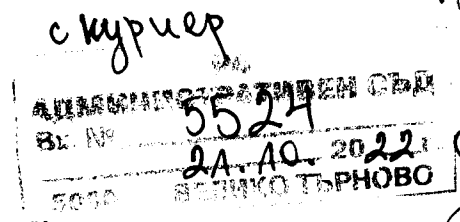 с куриер
АДМИНИСТРАТИВЕН СЪД
Вх. № 5524
21.10. 2022 г.
5000 ВЕЛИКО ТЪРНОВО